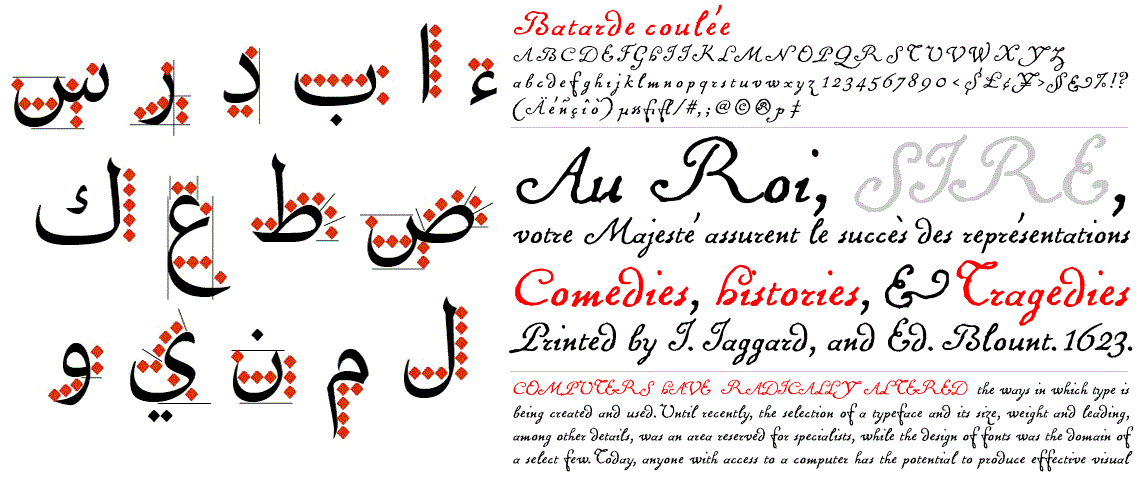 ء ا ب د ر س
ص ط ع ك
ل م ن ي و
Batarde coulée
ABCDEFGHIJKLMNOPQRSTUVWXYZ
abcdefghijklmnopqrstuvwxyz 1234567890<$£¢¥>§&%!?
Au Roi, SIRE,
votre Majesté assurent le succès des représentations
Comedies, histories, & Tragedies
Printed by I. Iaggard, and Ed. Blount. 1623.
COMPUTERS HAVE RADICALLY ALTERED the ways in which type is
being created and used. Until recently, the selection of a typeface and its size, weight and leading,
among other details, was an area reserved for specialists, while the design of fonts was the domain of
a select few. Today, anyone with access to a computer has the potential to produce effective visual